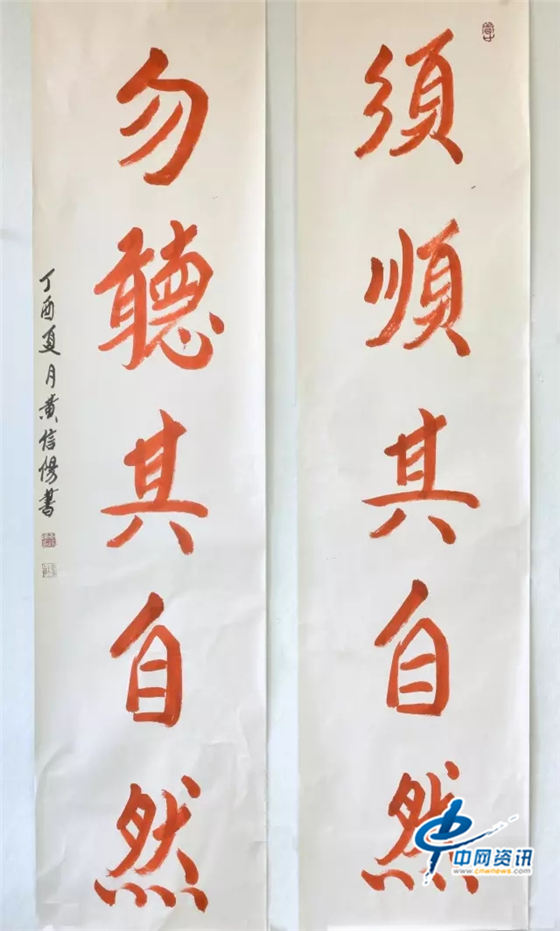 須順其自然
勿聽其自然
丁酉夏月黄信惕書
中网资讯
www.cnwnews.com